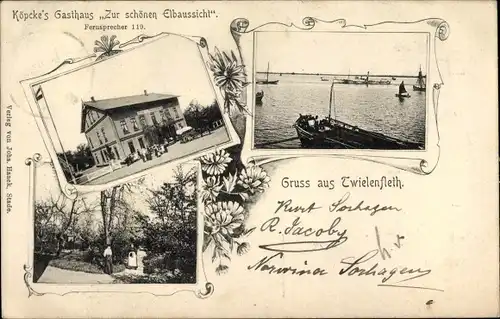 Köpcke's Gasthaus „Zur schönen Elbaussicht".
Fernsprecher 119.
Verlag von Johs. Hanck, Stade.
Gruss aus Twielenfleth.
Kurt
R. Jacoby